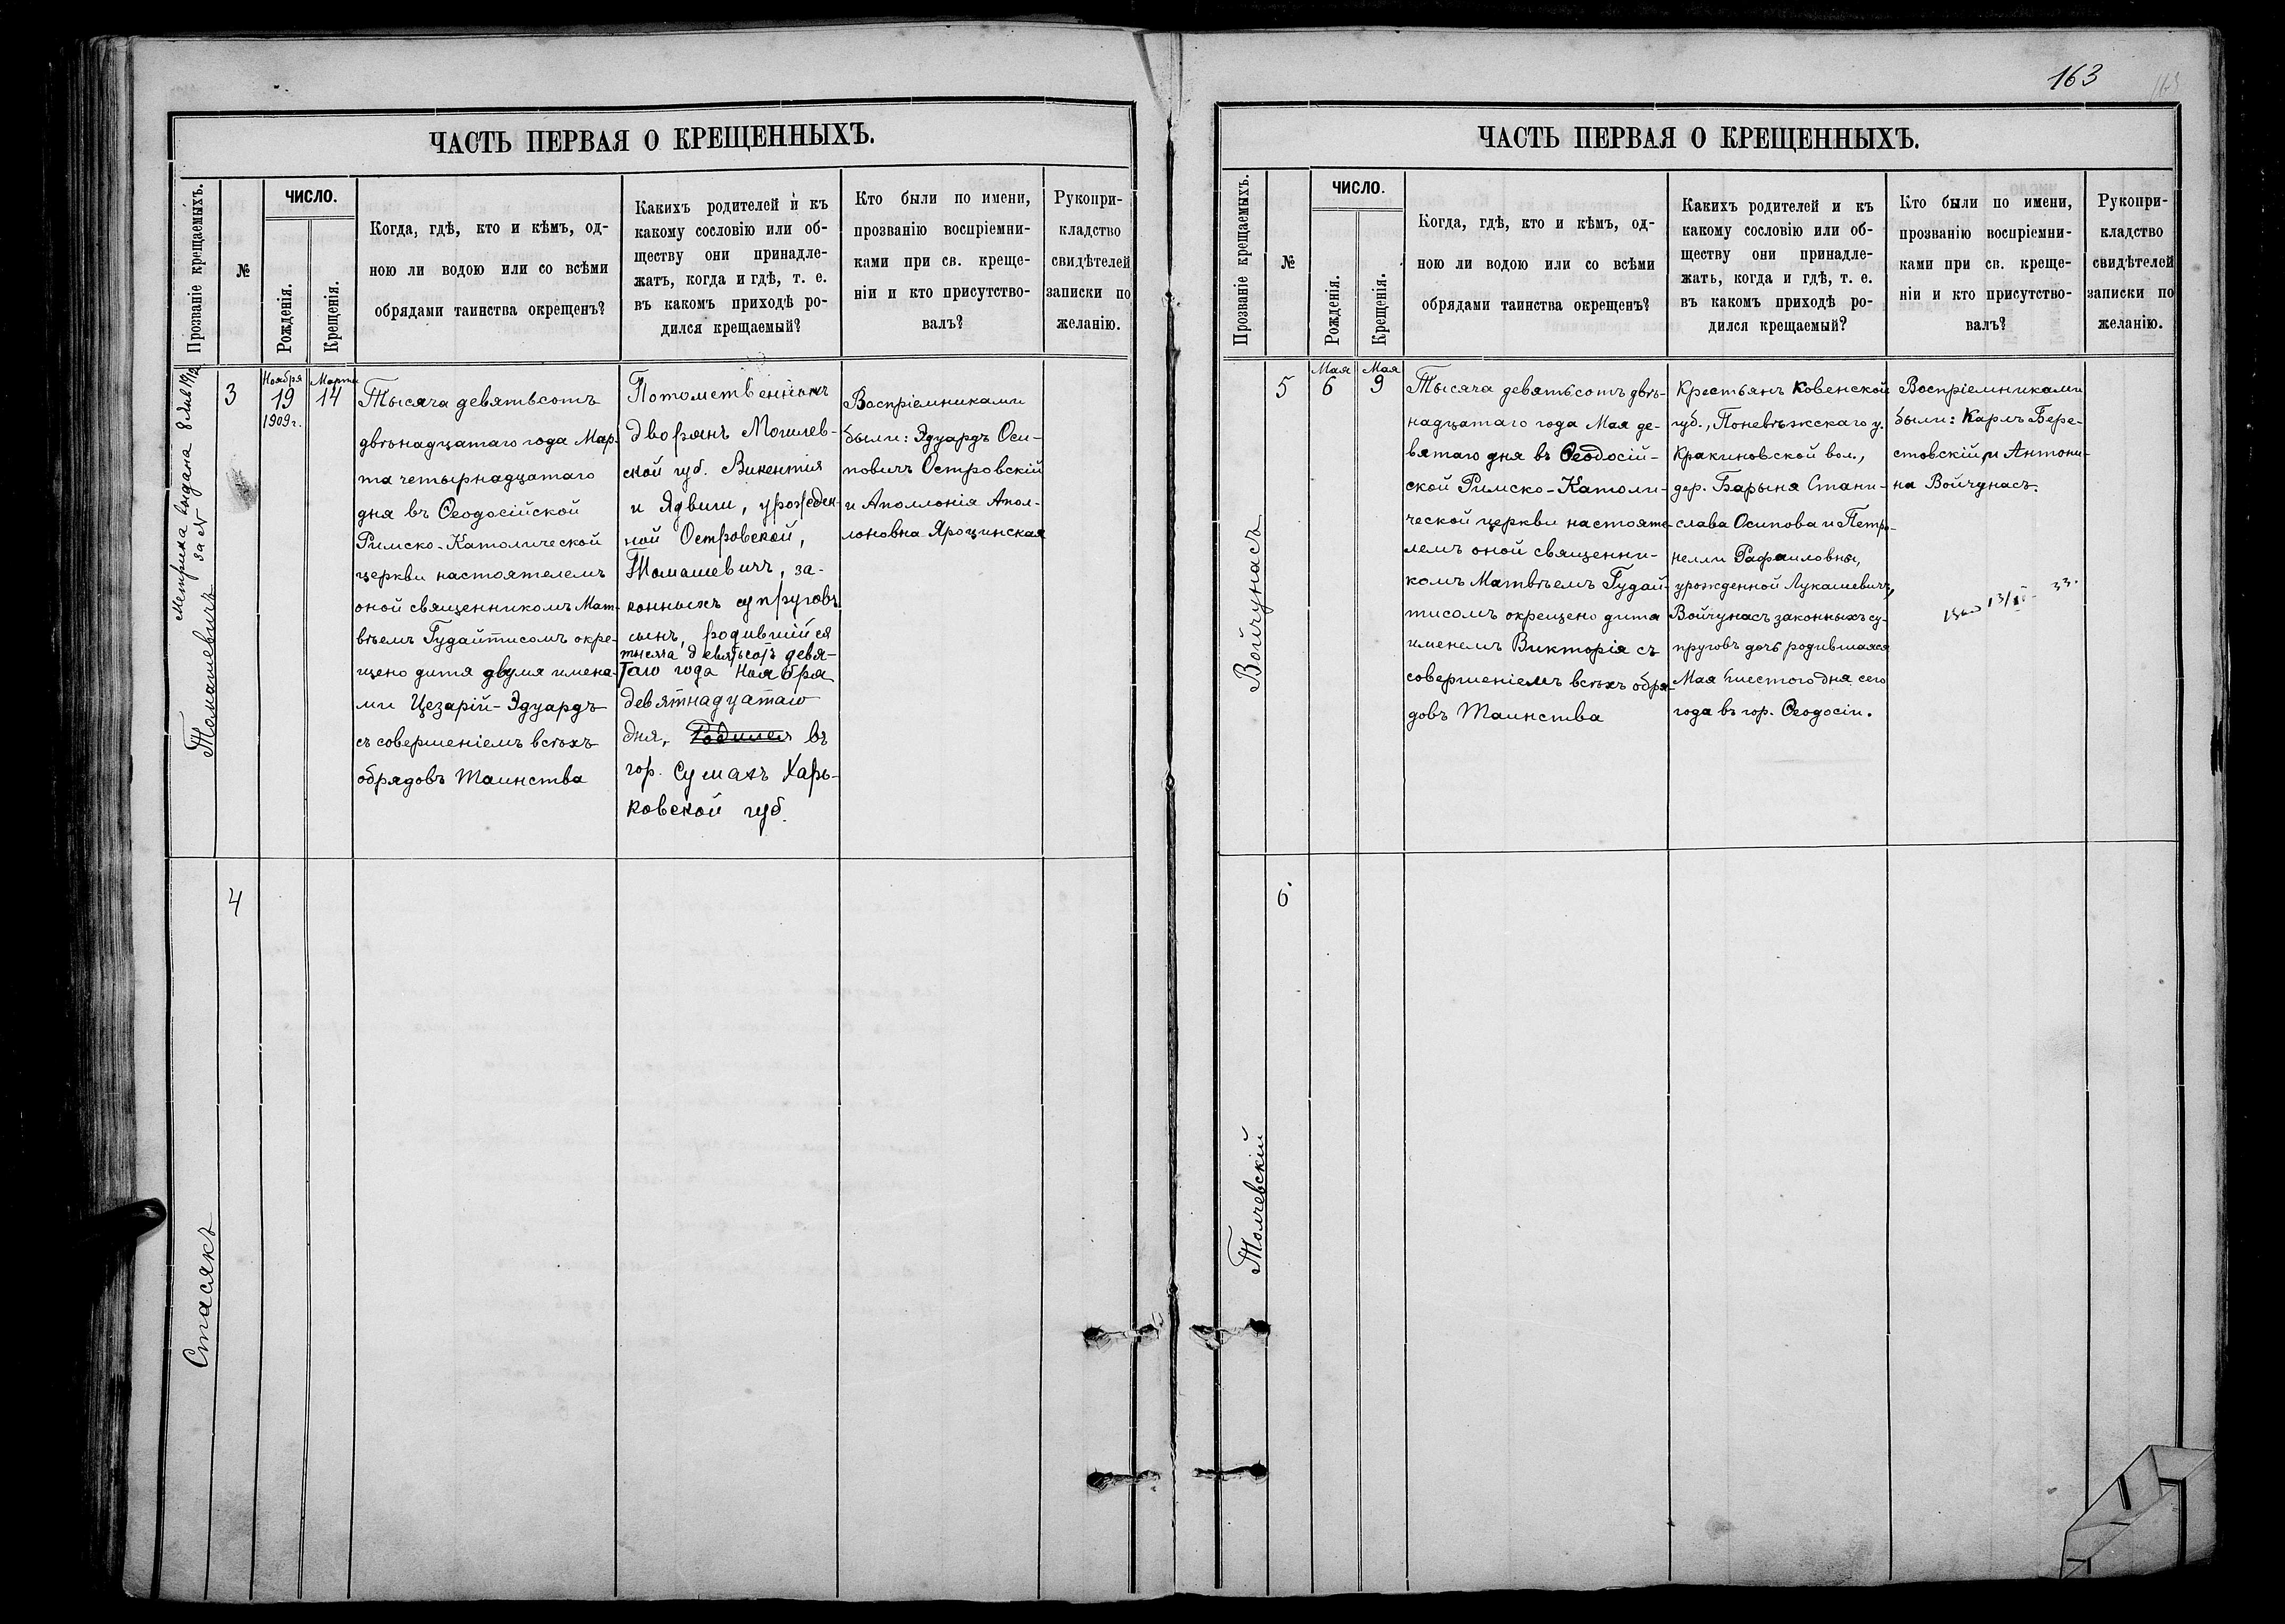 163
ЧАСТЬ ПЕРВАЯ О КРЕЩЕННЫХЪ.
Прозваніе крещаемыхъ.
№
ЧИСЛО.
Рожденія.
Крещенія.
Когда, гдѣ, кто и кѣмъ, од-
ною ли водою или со всѣми
обрядами таинства окрещенъ?
Какихъ родителей и къ
какому сословію или об-
ществу они принадле-
жатъ, когда и гдѣ, т. е.
въ какомъ приходѣ ро-
дился крещаемый?
Кто были по имени,
прозванію воспріемни-
ками при св. креще-
ніи и кто присутство-
валъ?
Рукопри-
кладство
свидѣтелей
записки по
желанію.
Метрика выдана 8 1912
за №
Томашевичъ
3
Ноября
19
1909 г.
Марта
14
Тысяча девятьсотъ
двѣнадцатаго года Мар-
та четырнадцатаго
дня въ Ѳеодосійской
Римско-Католической
церкви настоятелемъ
оной священникомъ Мат-
вѣемъ Гудайтисомъ окре-
щено дитя двумя имена-
ми Цезарій-Эдуардъ
съ совершеніемъ всѣхъ
обрядовъ Таинства
Потомственныхъ
дворянъ Могилев-
ской губ. Викентія
и Ядвиги, урожден-
ной Островской,
Томашевичъ, за-
конныхъ супруговъ
сынъ, родившійся
тысяча девятьсотъ девя-
таго года Ноября
девятнадцатаго
дня, Родился въ
гор. Сумахъ Харь-
ковской губ.
Воспріемниками
были: Эдуардъ Оси-
повичъ Островскій
и Аполлонія Апол-
лоновна Яроцинская
Стасякъ
4
ЧАСТЬ ПЕРВАЯ О КРЕЩЕННЫХЪ.
Прозваніе крещаемыхъ.
№
ЧИСЛО.
Рожденія.
Крещенія.
Когда, гдѣ, кто и кѣмъ, од-
ною ли водою или со всѣми
обрядами таинства окрещенъ?
Какихъ родителей и къ
какому сословію или об-
ществу они принадле-
жатъ, когда и гдѣ, т. е.
въ какомъ приходѣ ро-
дился крещаемый?
Кто были по имени,
прозванію воспріемни-
ками при св. креще-
ніи и кто присутство-
валъ?
Рукопри-
кладство
свидѣтелей
записки по
желанію.
Войчунасъ
5
Мая
6
Мая
9
Тысяча девятьсотъ двѣ-
надцатаго года Мая де-
вятаго дня въ Ѳеодосій-
ской Римско-Католи-
ческой церкви настояте-
лемъ оной священни-
комъ Матвѣемъ Гудай-
тисомъ окрещено дитя
именемъ Викторія съ
совершеніемъ всѣхъ обря-
довъ Таинства
Крестьянъ Ковенской
губ., Поневѣжскаго у.
Кракиновской вол.,
дер. Барыня Стани-
слава Осипова и Петро-
нелли Рафаиловны,
урожденной Лукашевичъ,
Войчунасъ законныхъ су-
пруговъ дочь родившаяся
Мая шестого дня сего
года въ гор. Ѳеодосіи.
Воспріемниками
были: Карлъ Бере-
стовскій и Антони-
на Войчунасъ.
Толчевскій
6